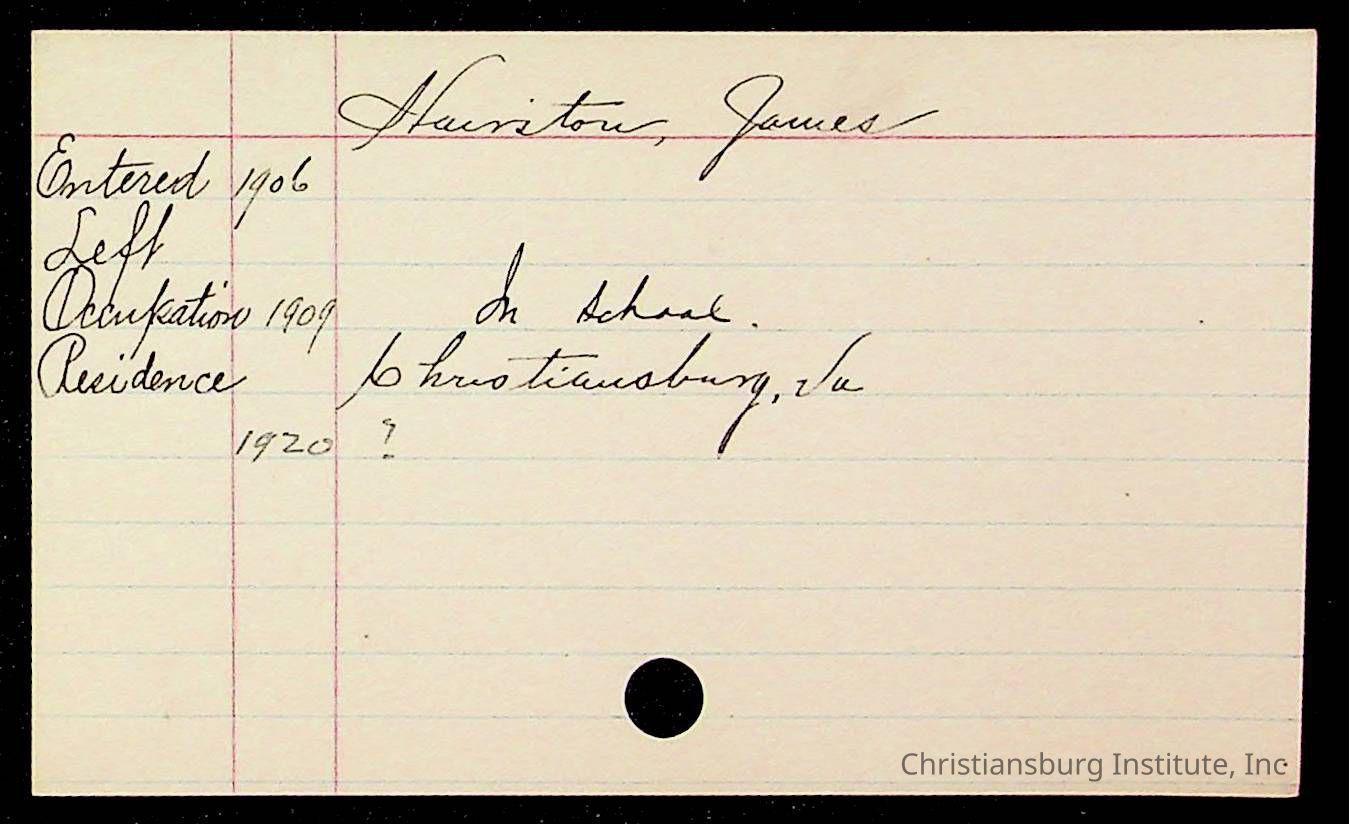 Hairston, James
Entered 1906
Left
Occupation 1909 In school.
Residence Christiansburg, Va
1920 ?
Christiansburg Institute, Inc